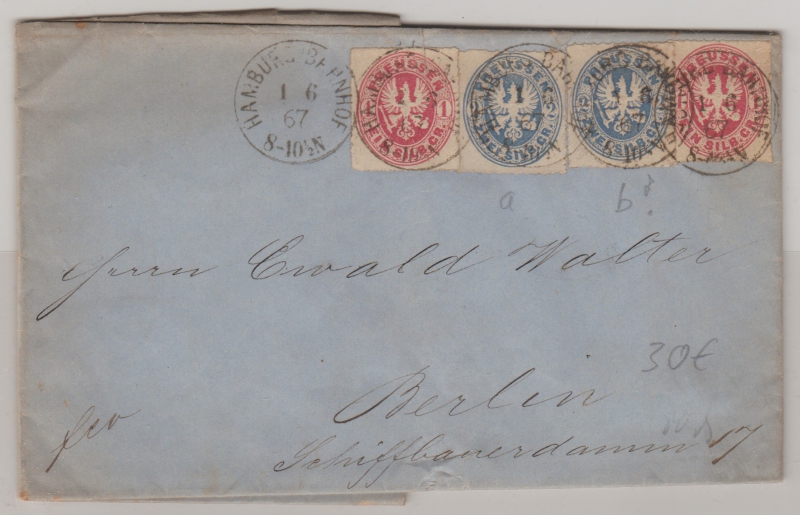 HAMBURG BAHNHOF
1 6
67
8-10½N
PREUSSEN
1
EIN SILB.GR.
PREUSSEN
ZWEI SILB.GR.
PREUSSEN
ZWEI SILB.GR.
PREUSSEN
EIN SILB.GR.
1 6
67
a
b
Herrn Ewald Walter
30€
Berlin
fco
Schiffbauerdamm 17